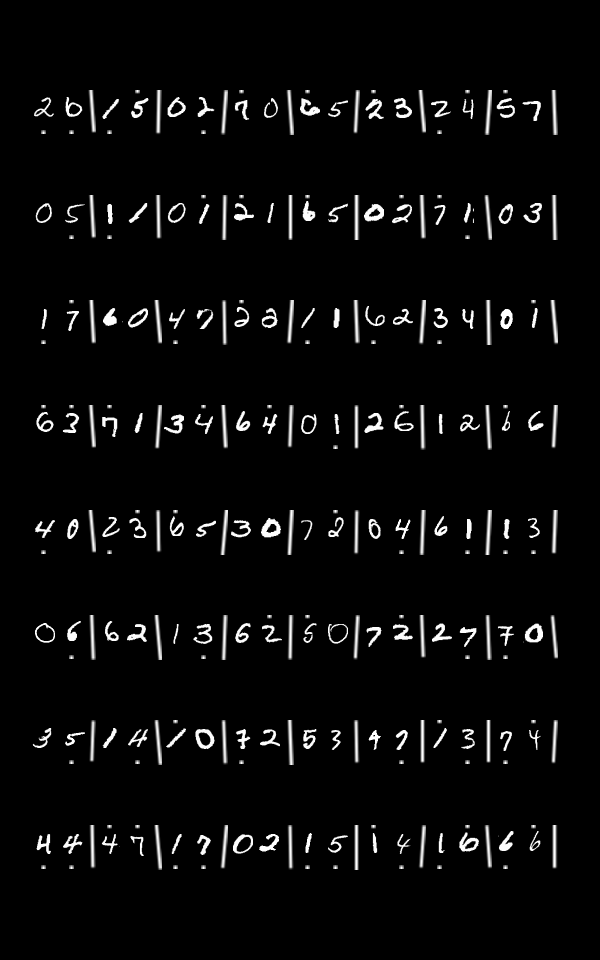 2 6 | 1 5 | 0 2 | 7 0 | 6 5 | 2 3 | 2 4 | 5 7 |
0 5 | 1 1 | 0 1 | 2 1 | 6 5 | 0 2 | 7 1 | 0 3 |
1 7 | 6 0 | 4 7 | 2 2 | 1 1 | 6 2 | 3 4 | 0 1 |
6 3 | 7 1 | 3 4 | 6 4 | 0 1 | 2 6 | 1 2 | 6 6 |
4 0 | 2 3 | 6 5 | 3 0 | 7 2 | 0 4 | 6 1 | 1 3 |
0 6 | 6 2 | 1 3 | 6 2 | 5 0 | 7 2 | 2 7 | 7 0 |
3 5 | 1 4 | 1 0 | 7 2 | 5 3 | 4 7 | 1 3 | 7 4 |
4 4 | 4 7 | 1 7 | 0 2 | 1 5 | 1 4 | 1 6 | 6 6 |